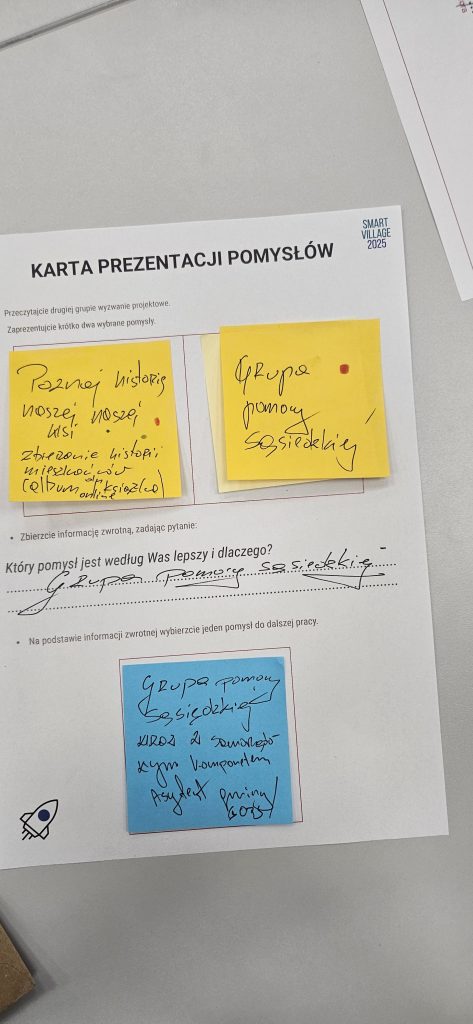 SMART
VILLAGE
2025
KARTA PREZENTACJI POMYSŁÓW
Przeczytajcie drugiej grupie wyzwanie projektowe.
Zaprezentujcie krótko dwa wybrane pomysły.
Poznaj historię
naszej naszej
wsi
zbieranie historii
mieszkańców
(album książka)
online
Grupa
pomocy
sąsiedzkiej
• Zbierzcie informację zwrotną, zadając pytanie:
Który pomysł jest według Was lepszy i dlaczego?
Grupa pomocy sąsiedzkiej
• Na podstawie informacji zwrotnej wybierzcie jeden pomysł do dalszej pracy.
Grupa pomocy
sąsiędzkiej
wraz z samorządo
wym komponentem
Asystent gminny